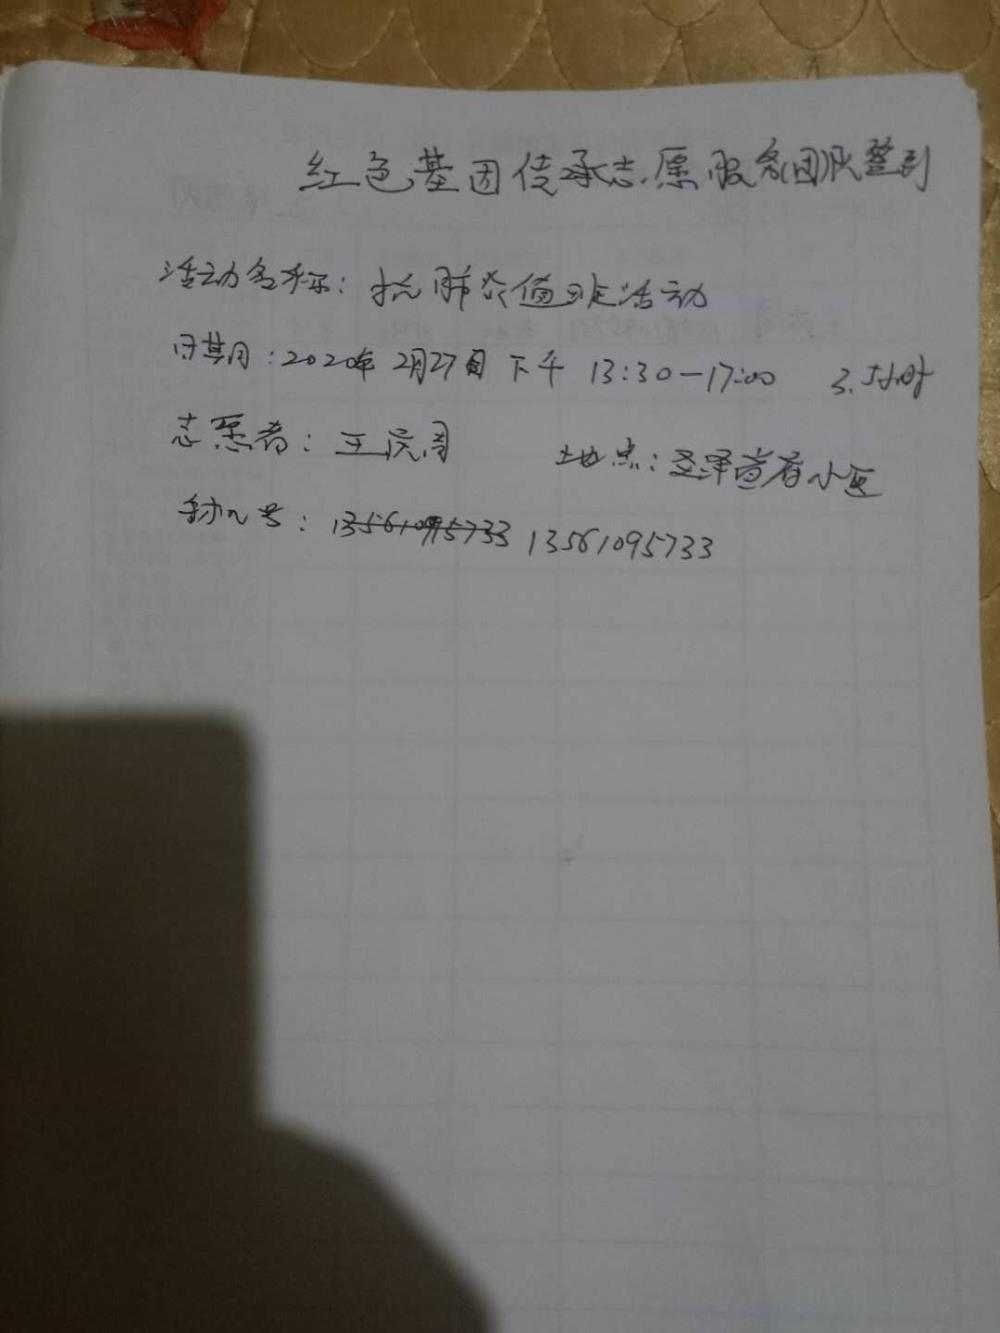 红色基因传承志愿服务(团)队签到
活动名称：抗肺炎值班活动
日期：2020年2月27日 下午 13:30—17:00 3.5小时
志愿者：王庆周 地点：圣泽首府小区
手机号：13561095733 13561095733